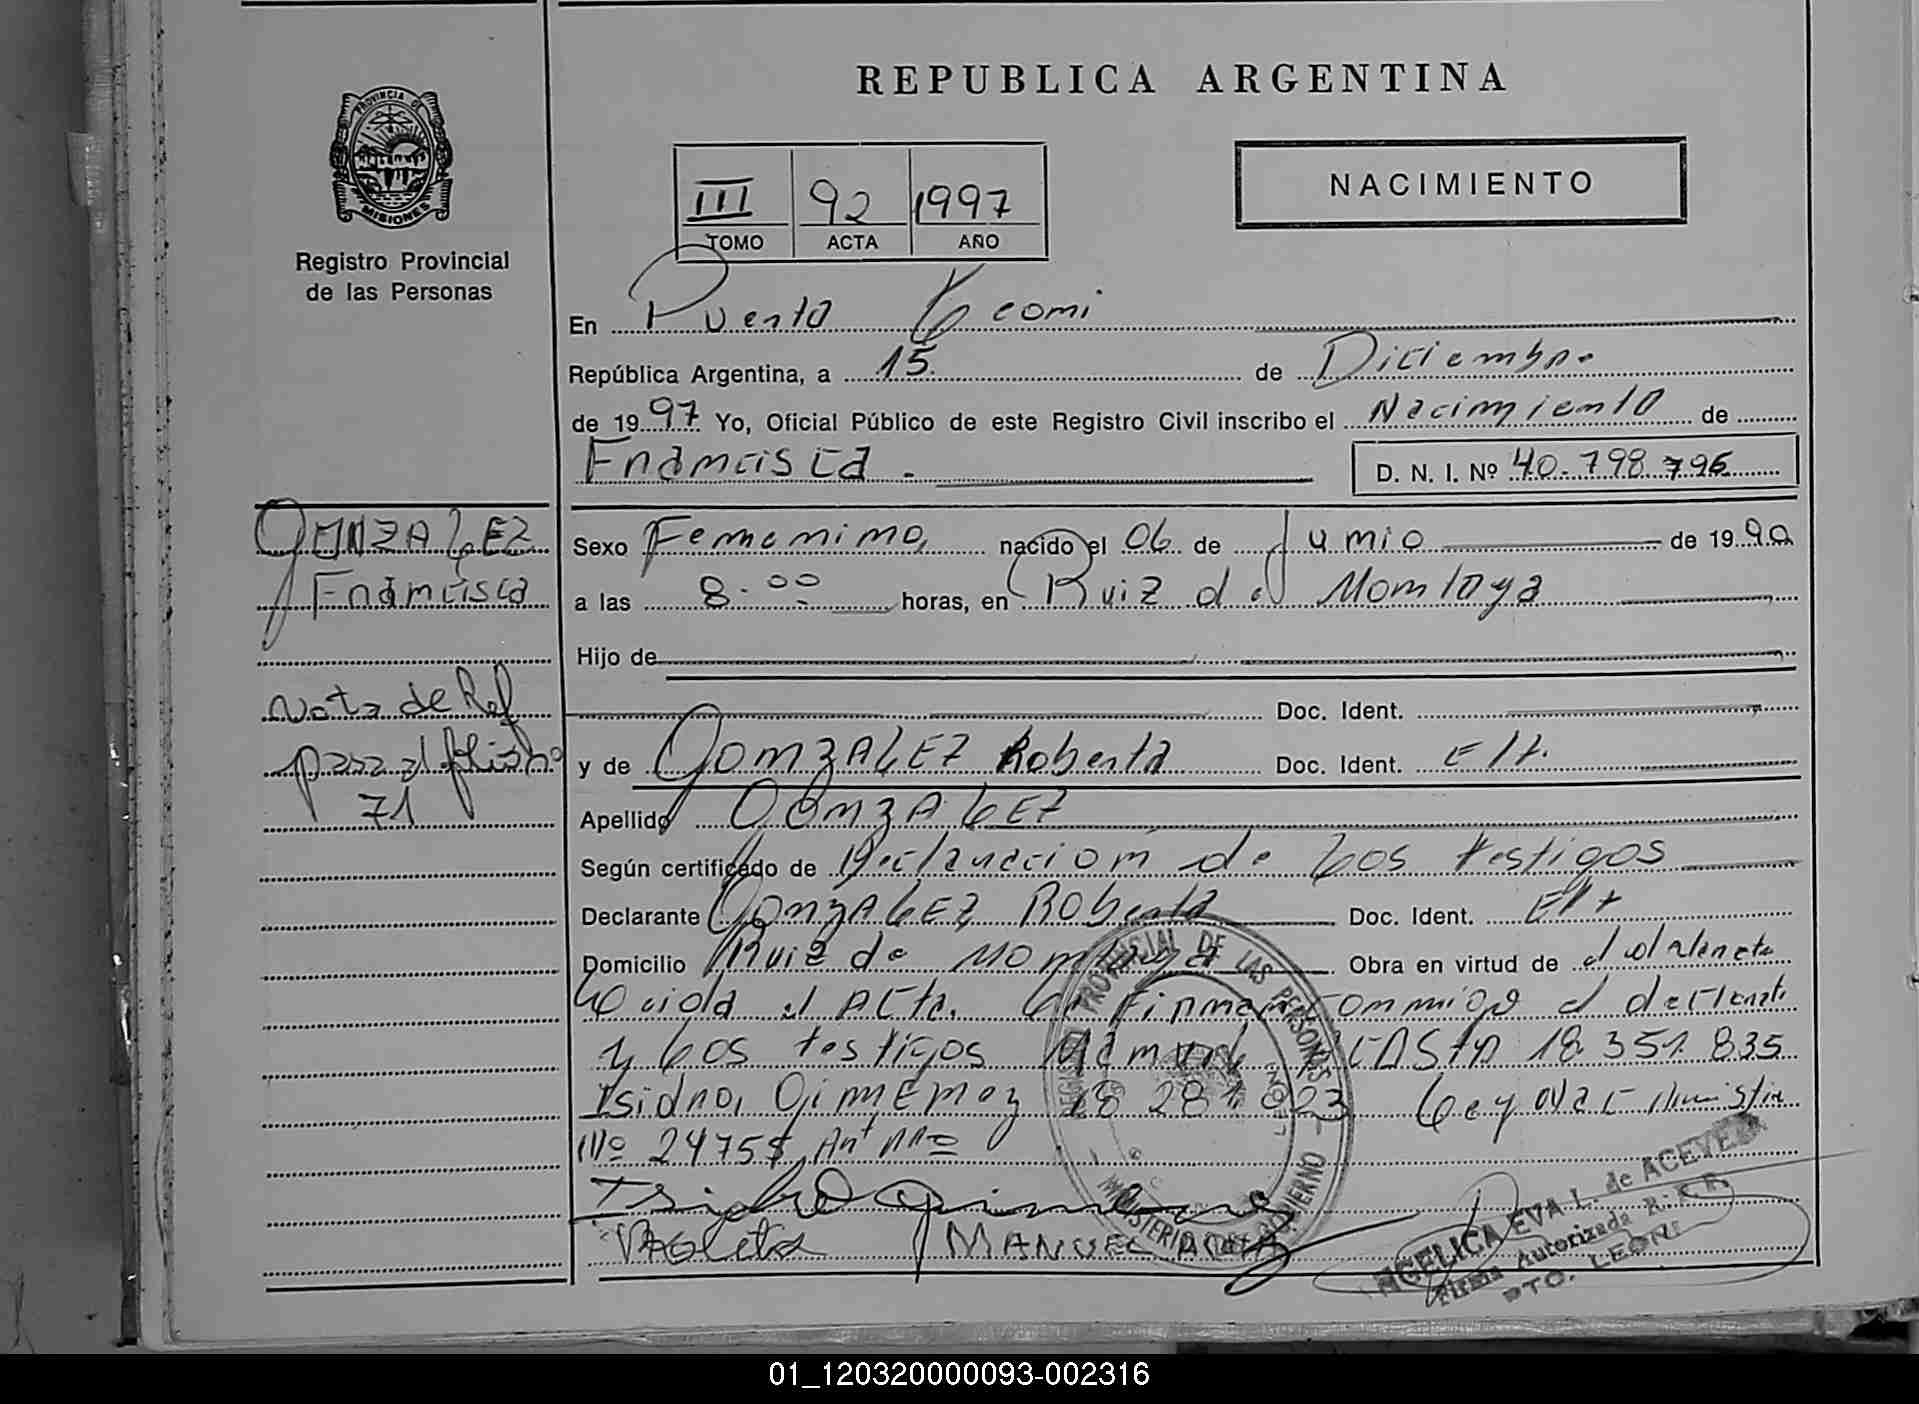 REPUBLICA ARGENTINA
PROVINCIA DE
MISIONES
Registro Provincial
de las Personas
III 92 1997
TOMO ACTA AÑO
NACIMIENTO
En Puerto Leoni
República Argentina, a 15 de Diciembre
de 1997 Yo, Oficial Público de este Registro Civil inscribo el Nacimiento de
Francisca. D. N. I. Nº 40.798.796
GONZALEZ
Francisca
Nota de Ref
para el folio Nº
71
Sexo Femenino, nacido el 06 de Junio de 1990
a las 8.00 horas, en Ruiz de Montoya
Hijo de
Doc. Ident.
y de GONZALEZ Roberta Doc. Ident. E/t.
Apellido GONZALEZ
Según certificado de Declaracion de Los testigos
Declarante GONZALEZ Roberta Doc. Ident. E/t
Domicilio Ruiz de Montoya Obra en virtud de el declarante
Leida el Acta. La Firman conmigo el declarante
y Los testigos Manuel COSTA 18.351.835
Isidro, GiMENez 18 281.023 Ley
Nº 24755
Isidro Gimenez
MANUEL
REGISTRO PROVINCIAL DE LAS PERSONAS
MINISTERIO DE GOBIERNO
ANGELICA EVA L. de ACEVEDO
Firma Autorizada R.P.P.
PTO. LEONI
01_120320000093-002316